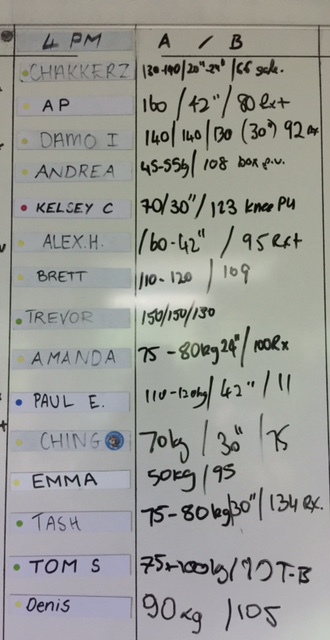 4 PM A / B
CHAKKERZ 130-140/20"-24"/66 scale.
AP 160 / 42" / 80 Rx+
DAMO I 140/140/130 (30") 92 Rx
ANDREA 45-55kg / 108 box p.u.
KELSEY C 70/30"/123 knee PU
ALEX.H. /60-42" / 95 Rx+
BRETT 110-120 / 109
TREVOR 150/150/130
AMANDA 75-80kg 24"/100Rx
PAUL E. 110-120kg/ 42" / 11
CHING 70kg / 30" / 75
EMMA 50kg/95
TASH 75-80kg/30"/134 Rx.
TOM S T-B
Denis 90kg /105